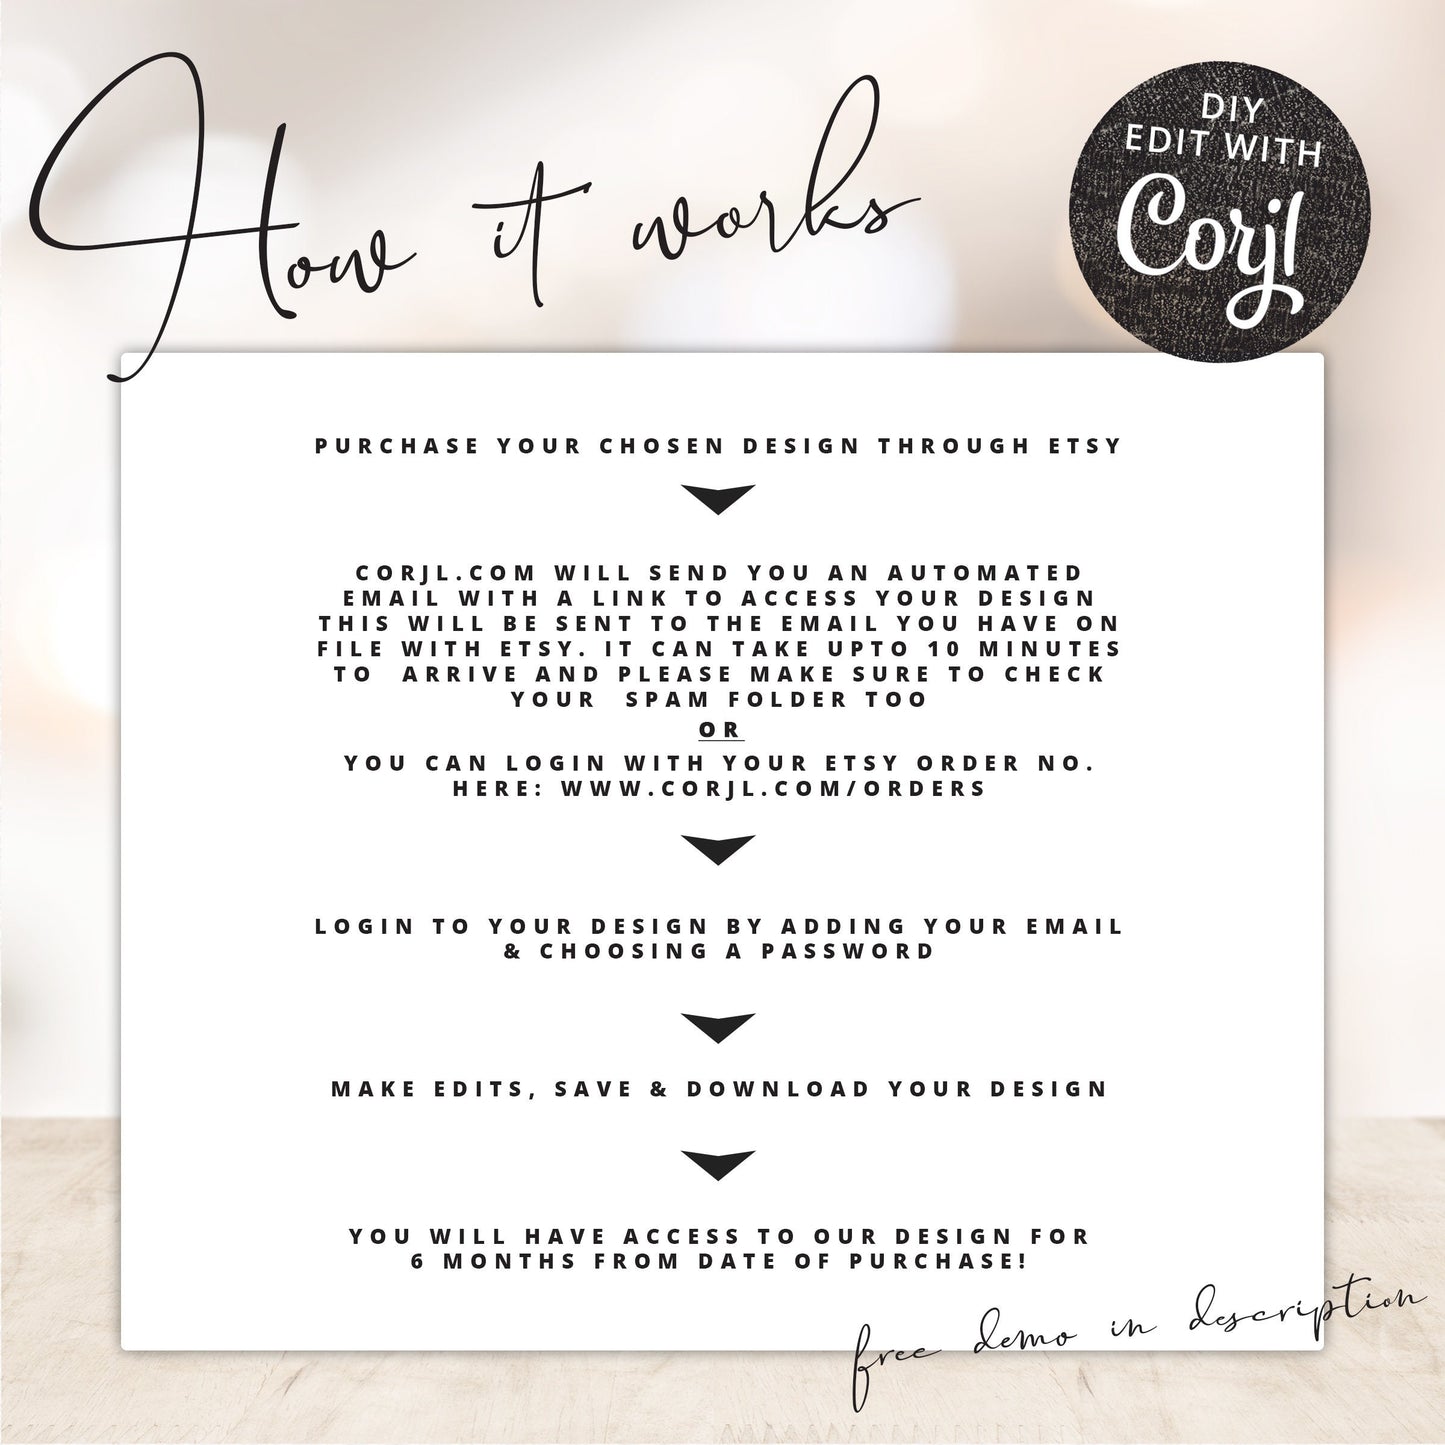 How it works
DIY
EDIT WITH
Corjl
PURCHASE YOUR CHOSEN DESIGN THROUGH ETSY
CORJL.COM WILL SEND YOU AN AUTOMATED
EMAIL WITH A LINK TO ACCESS YOUR DESIGN
THIS WILL BE SENT TO THE EMAIL YOU HAVE ON
FILE WITH ETSY. IT CAN TAKE UPTO 10 MINUTES
TO ARRIVE AND PLEASE MAKE SURE TO CHECK
YOUR SPAM FOLDER TOO
OR
YOU CAN LOGIN WITH YOUR ETSY ORDER NO.
HERE: WWW.CORJL.COM/ORDERS
LOGIN TO YOUR DESIGN BY ADDING YOUR EMAIL
& CHOOSING A PASSWORD
MAKE EDITS, SAVE & DOWNLOAD YOUR DESIGN
YOU WILL HAVE ACCESS TO OUR DESIGN FOR
6 MONTHS FROM DATE OF PURCHASE!
free demo in description